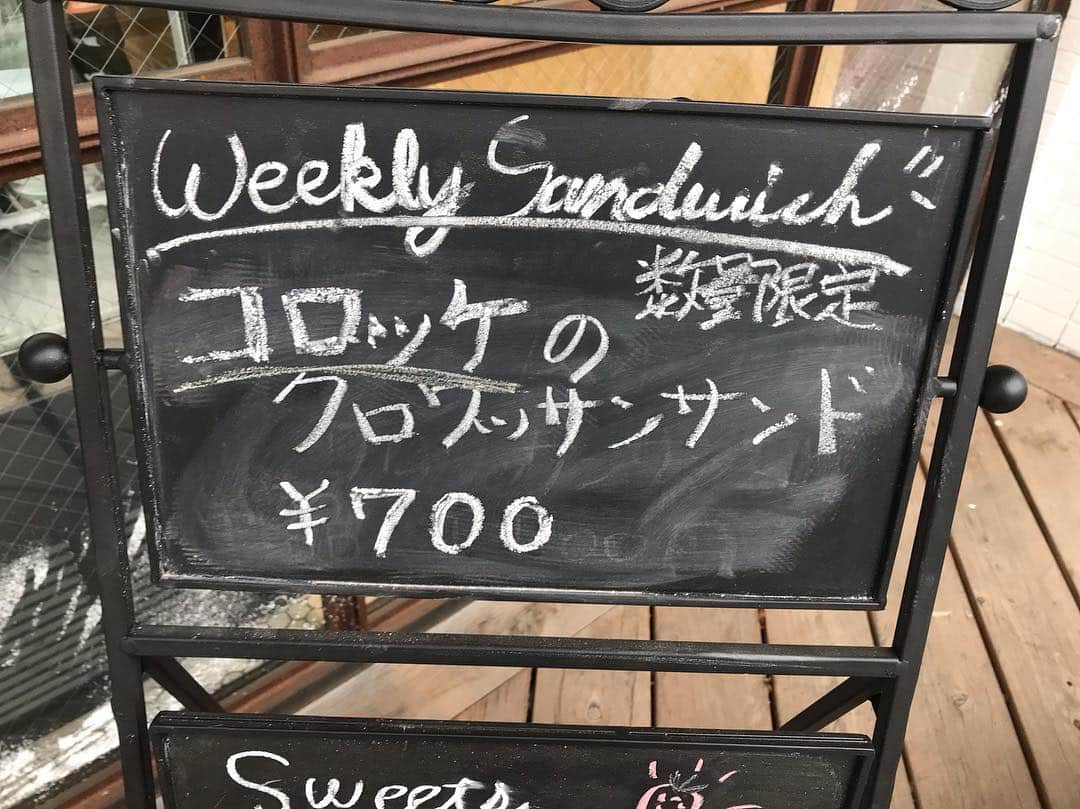 Weekly Sandwich
数量限定
コロッケの
クロワッサンサンド
¥700
Sweets